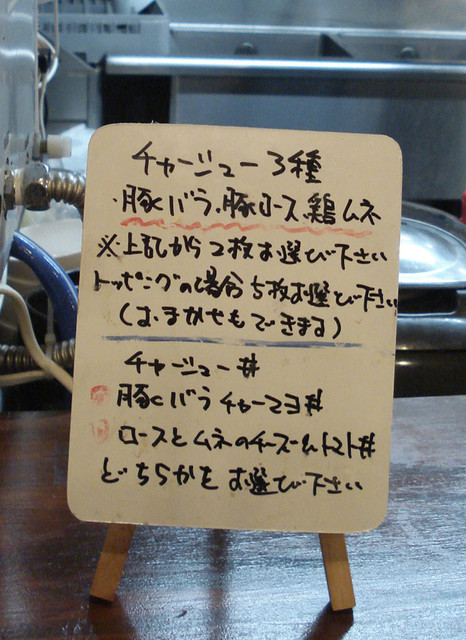 チャーシュー3種
・豚バラ、豚ロース、鶏ムネ
※上記から2枚お選び下さい
トッピングの場合5枚お選び下さい
(おまかせもできます)
チャーシュー丼
豚バラチャーマヨ丼
ロースとムネのチーズトマト丼
どちらかをお選び下さい